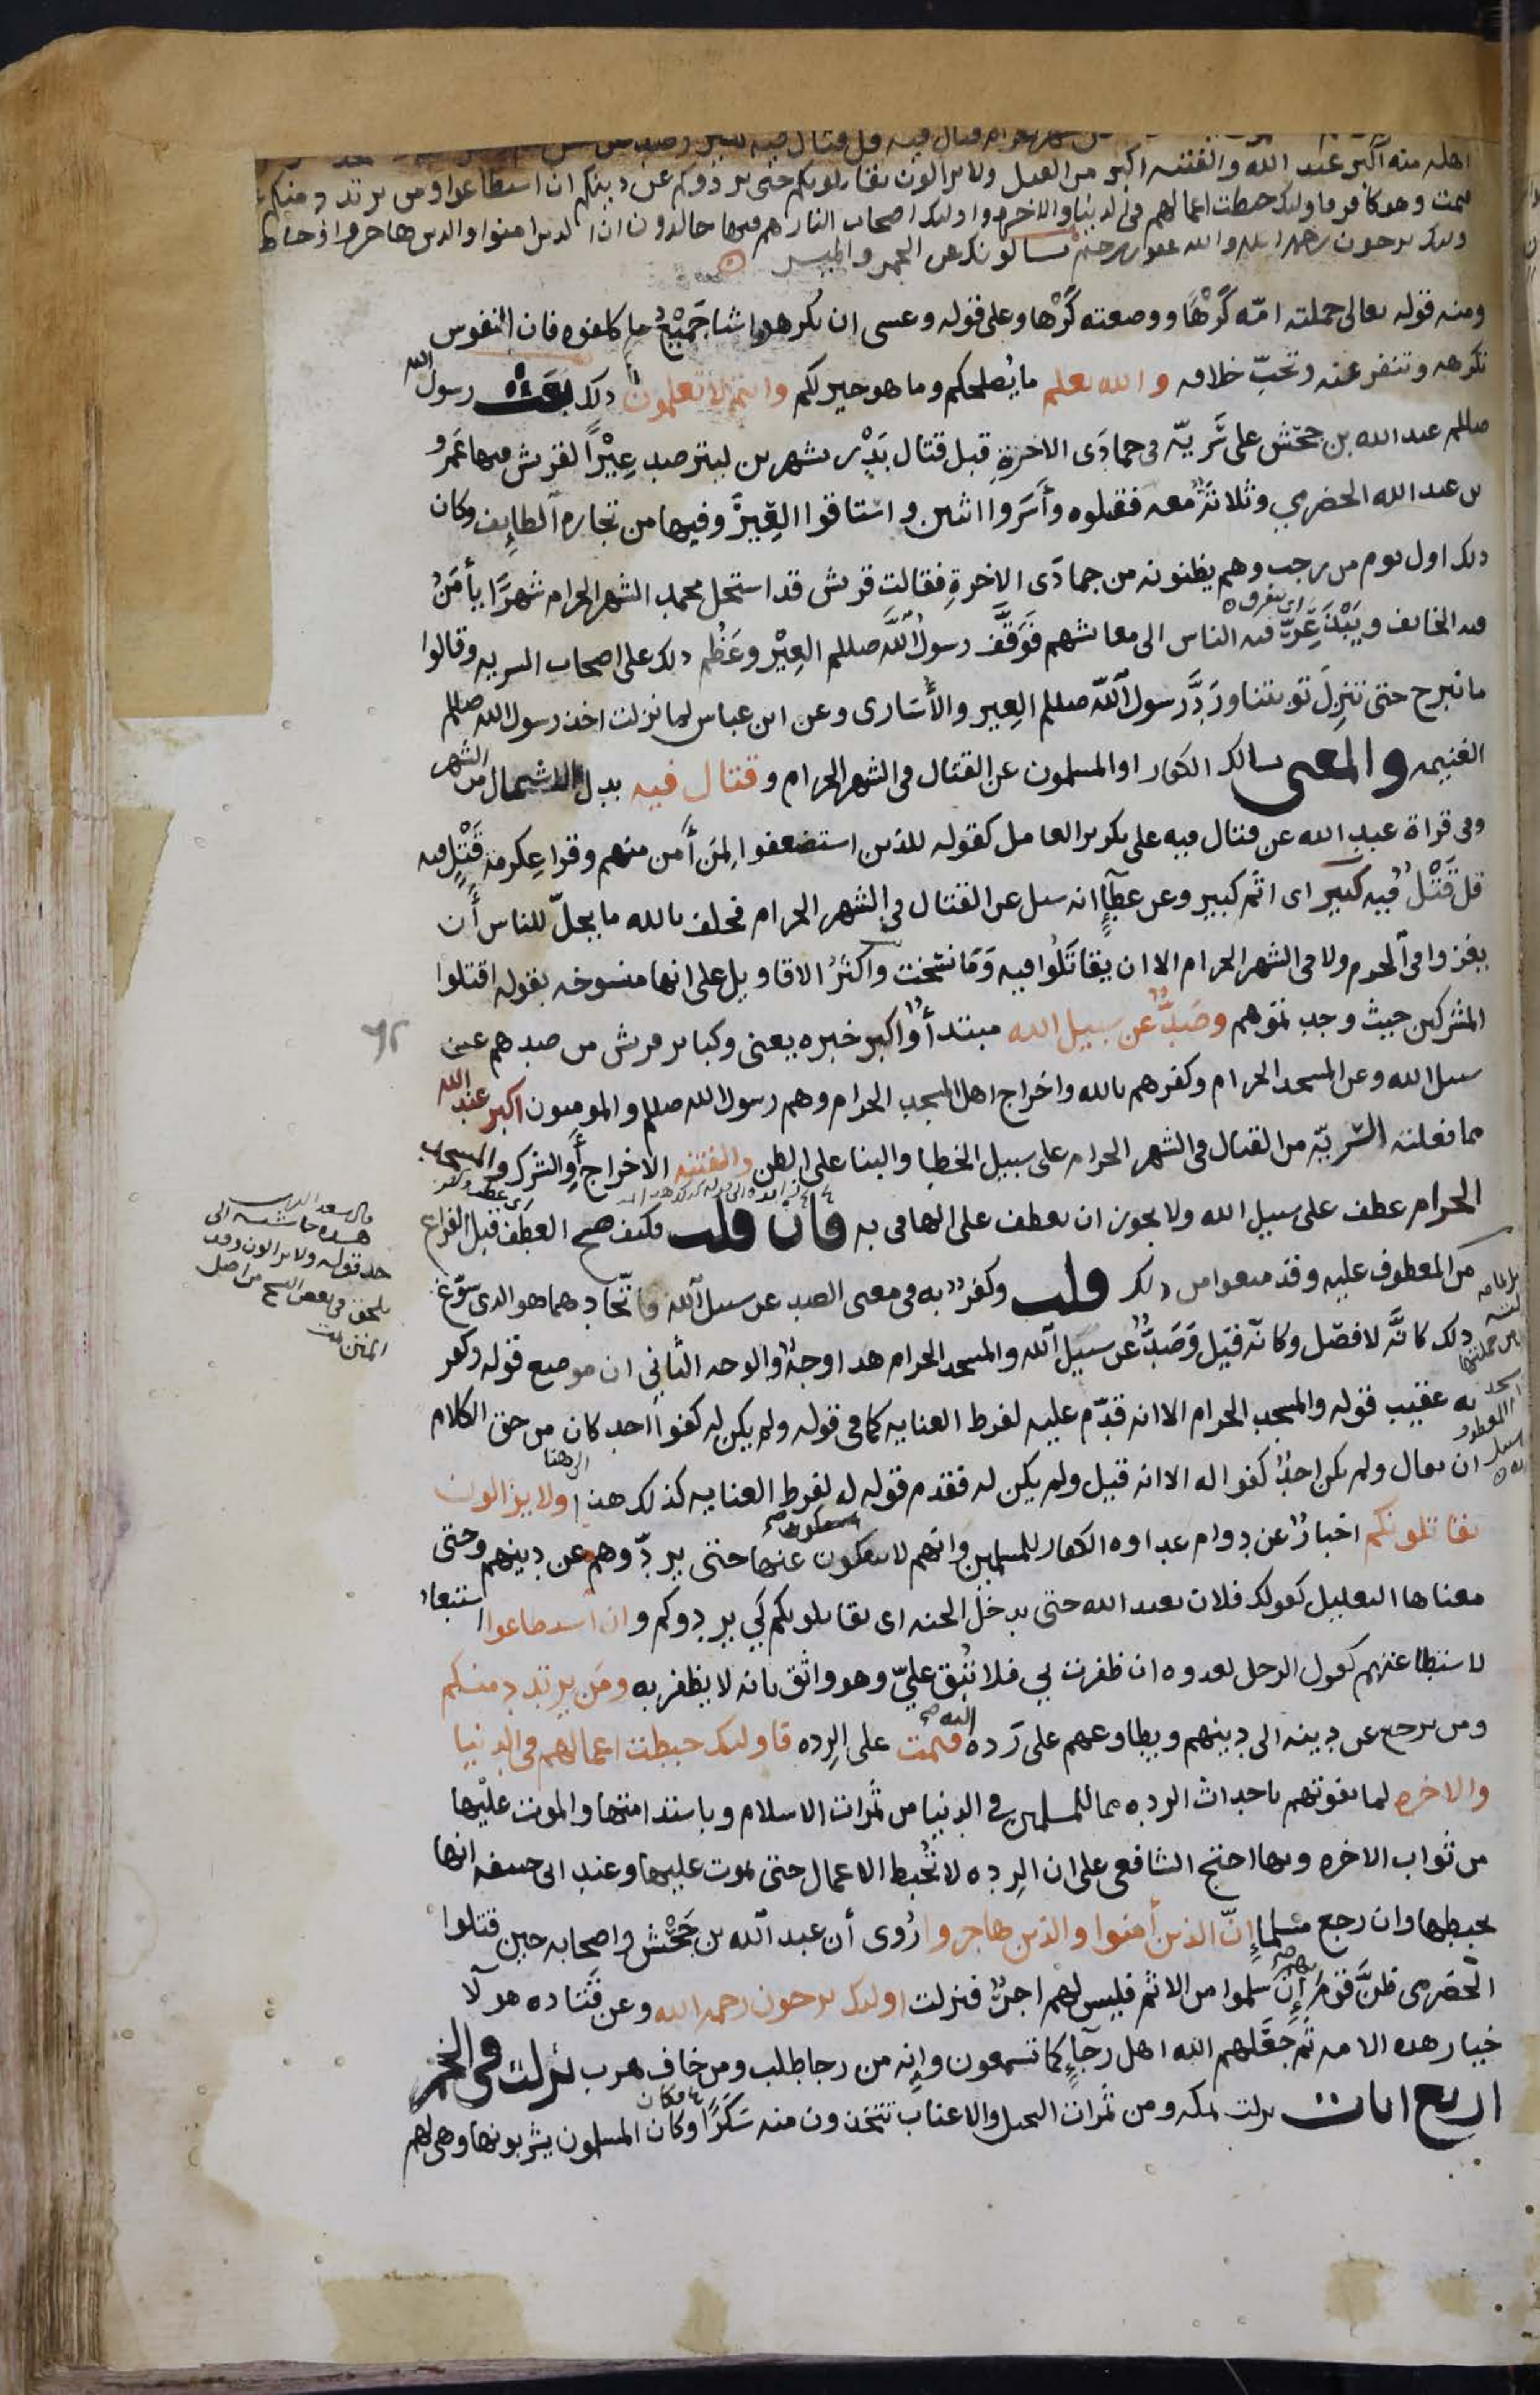 اهله منه اكبر عند الله والفتنه اكبر من القتل ولا يزالون يقاتلونكم حتى يردوكم عن دينكم ان استطاعوا ومن يرتدد منكم
فيمت وهو كافر فاولئك حبطت اعمالهم في الدنيا والاخره واولئك اصحاب النار هم فيها خالدون ان الذين امنوا والذين هاجروا وجاهدوا
اولئك يرجون رحمه الله والله غفور رحيم يسالونك عن الخمر والميسر
ومنه قوله تعالى حملته امّه كَرْهًا ووضعته كَرْها وعلى قوله وعسى ان تكرهوا شيا جَمِيْعُ ما كلفوه فان النفوس
تكرهه وتنفر عنه وتحبّ خلافه والله يعلم ما يُصلحكم وما هو خير لكم وانتم لا تعلمون ذلك بَعَثَ رسول الله
صللم عبد الله بن جحّش على سَريّه في جمادَى الاخرةِ قبل قتال بَدْر بشهرين ليترصد عِيْرًا لقريش فيها عَمرو
بن عبد الله الحضرمي وثلاثةٌ معه فقتلوه وأسَروا اثنين واستاقوا العِيْرَ وفيها من تجاره الطايِف وكان
ذلك اول يوم من رجب وهم يظنونه من جمادَى الاخرةِ فقالت قريش قد استحل محمد الشهر الحرام شهرًا يأمَنُ
فيه الخايف ويَبْذَعِرّ فيه الناس الى معايشهم فَوَقَّفَ رسولُ اللَّه صللم العِيْر وعَظُم ذلك على اصحاب السريه وقالوا
اي يتفرق
ما نبرح حتى تنزِلَ توبتنا ورَدَّ رسول اللَّه صللم العِير والأُسَارى وعن ابن عباس لما نزلت اخذ رسول الله صللم
الغنيمه والمعنى يسالك الكفار او المسلمون عن القتال في الشهر الحرام وقتال فيه بدل الاشتمال من الشهر
وفي قراة عبد الله عن قتال فيه على تكرير العامل كقوله للذين استضعفوا لِمَن أمن منهم وقرا عِكرمة قَتْلٍ فيه
قل قَتْلٌ فيه كبير اى اثم كبير وعن عطآءٍ انه سيل عن القتال في الشهر الحرام فحلف بالله ما يحلّ للناس أن
يغزوا في الحرم ولا في الشهر الحرام الا ان يُقاتَلُوا فيه وَمَا نسُخت واكثرُ الاقاويل على انها منسوخه بقوله اقتلوا
المشركين حيث وجدتموهم وصَدٌّ عن سبيل الله مبتدأ واكبر خبره يعنى وكباير قريش من صدهم عن
سبيل الله وعن المسجد الحرام وكفرهم بالله واخراج اهل المسجد الحرام وهم رسول الله صللم والمومنون اكبر عند الله
مما فعلته السّريّه من القتال في الشهر الحرام على سبيل الخطا والبنا على الظن والفتنه الاخراج أوِ الشرك والمسجد
الحرام عطف على سبيل الله ولا يجوز ان يعطف على الها في به فان قلت فكيف صح العطف قبل الفراغ
من المعطوف عليه وقد منعوا من ذلك قلت وكفرٌ به في معنى الصد عن سبيل اللّه فاتّحادهما هو الذى سَوّغ
ذلك كانَّه لا فصْل وكانّه قيل وَصَدٌّ عن سبيل اللّه والمسجد الحرام هذا وجهٌ والوجه الثاني ان موضع قوله وكفر
به عقيب قوله والمسجد الحرام الا انه قدّم عليه لفرط العنايه كما في قوله ولم يكن له كفوا احد كان من حق الكلام
ان يقال ولم يكن احدٌ كفوا له الا انه قيل ولم يكن له فقدم قوله له لفرط العنايه كذلك هذا ولا يزالون
يقاتلونكم اخبارٌ عن دوام عداوه الكفار للمسلمين وانهم لا ينفكون عنها حتى يردّوهم عن دينهم وحتى
معناها التعليل كقولك فلان يعبد الله حتى يدخُل الجنه اى يقاتلونكم كَي يردوكم وان استطاعوا استبعادٌ
لاستطاعتهم كقول الرجل لعدوه ان ظفرت بي فلا تُبْقِ عليّ وهو واثق بانه لا يظفر به ومَن يرتدد منكم
ومن يرجع عن دينه الى دينهم ويطاوعهم على رَده اليه فيمت على الرِده فاوليك حبطت اعمالهم في الدنيا
والاخره لما يفوتهم باحداث الرده مما للمسلمين في الدنيا من ثمرات الاسلام وباستدامتها والموت عليْها
من ثواب الاخره وبها احتج الشافعي على ان الرِده لا تُحْبط الاعمال حتى يموت عليها وعند ابى حنيفه انها
تحبطها وان رجع مسلما إنّ الذين أمنوا والذين هاجروا رُوى أن عبد الله بن جَحْش واصحابه حين قتلوا
الحَضرمى ظنَّ قومٌ إن سلموا من الاثم فليس لهم اجرٌ فنزلت اولئك يرجون رحمه الله وعن قَتَاده هولآ
خيار هذه الامه ثم جَعَلهم الله اهل رَجآءٍ كما تسمعون وانه من رجا طلب ومن خاف هرب نزلت في الخمر
اربع ايات نزلت بمكه ومن ثمرات النخيل والاعناب تتخذون منه سَكَرًا وكان المسلمون يشربونها وهي لهم
قال سعد الدين
هذه حاشيه الى
حد قوله ولا يزالون وقد
يلحق في بعض النسخ من اصل
المتن